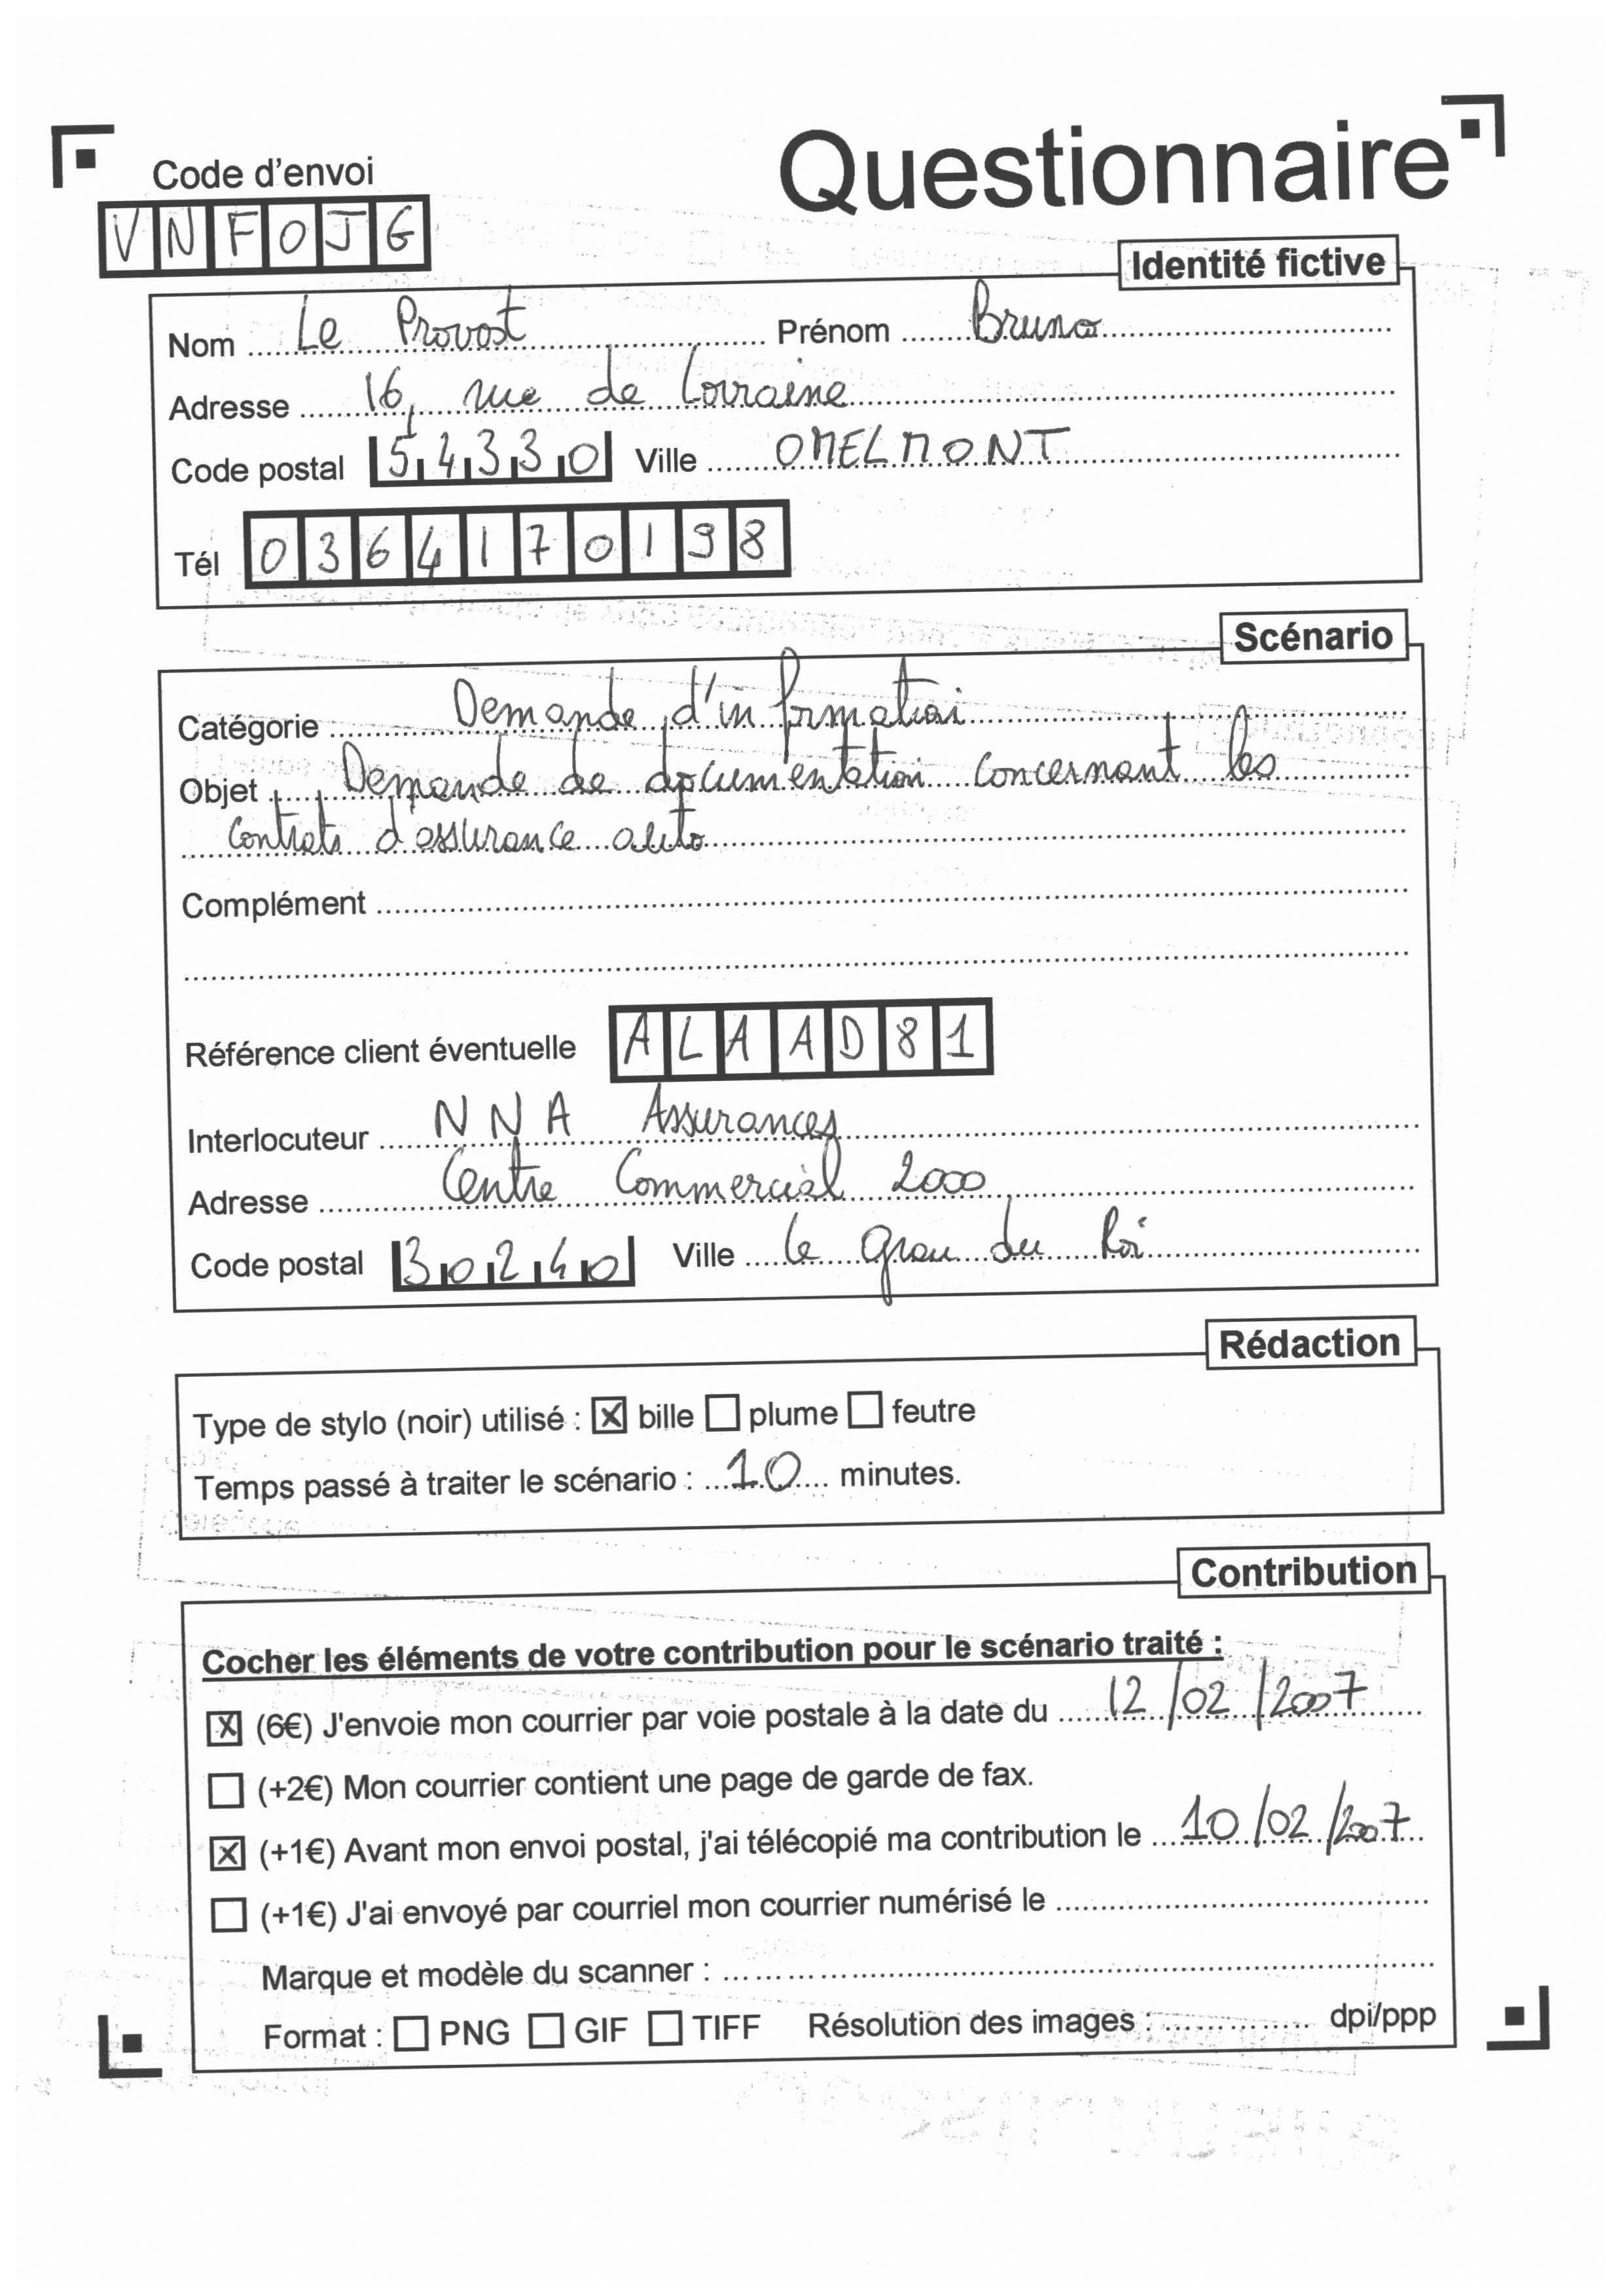 Questionnaire
Code d'envoi
VNFOJG
Identité fictive
Nom Le Provost Prénom Bruno
Adresse 16, rue de Lorraine
Code postal 54330 Ville OMELMONT
Tél 0364170198
Scénario
Catégorie Demande d'information
Objet Demande de documentation concernant les
contrats d'assurance auto
Complément
Référence client éventuelle ALAAD81
Interlocuteur NNA Assurances
Adresse Centre Commercial 2000
Code postal 30240 Ville Le grau du Roi
Rédaction
Type de stylo (noir) utilisé : ☒ bille ☐ plume ☐ feutre
Temps passé à traiter le scénario : 10 minutes.
Contribution
Cocher les éléments de votre contribution pour le scénario traité :
☒ (6€) J'envoie mon courrier par voie postale à la date du 12/02/2007
☐ (+2€) Mon courrier contient une page de garde de fax.
☒ (+1€) Avant mon envoi postal, j'ai télécopié ma contribution le 10/02/2007
☐ (+1€) J'ai envoyé par courriel mon courrier numérisé le
Marque et modèle du scanner :
Format : ☐ PNG ☐ GIF ☐ TIFF Résolution des images : dpi/ppp